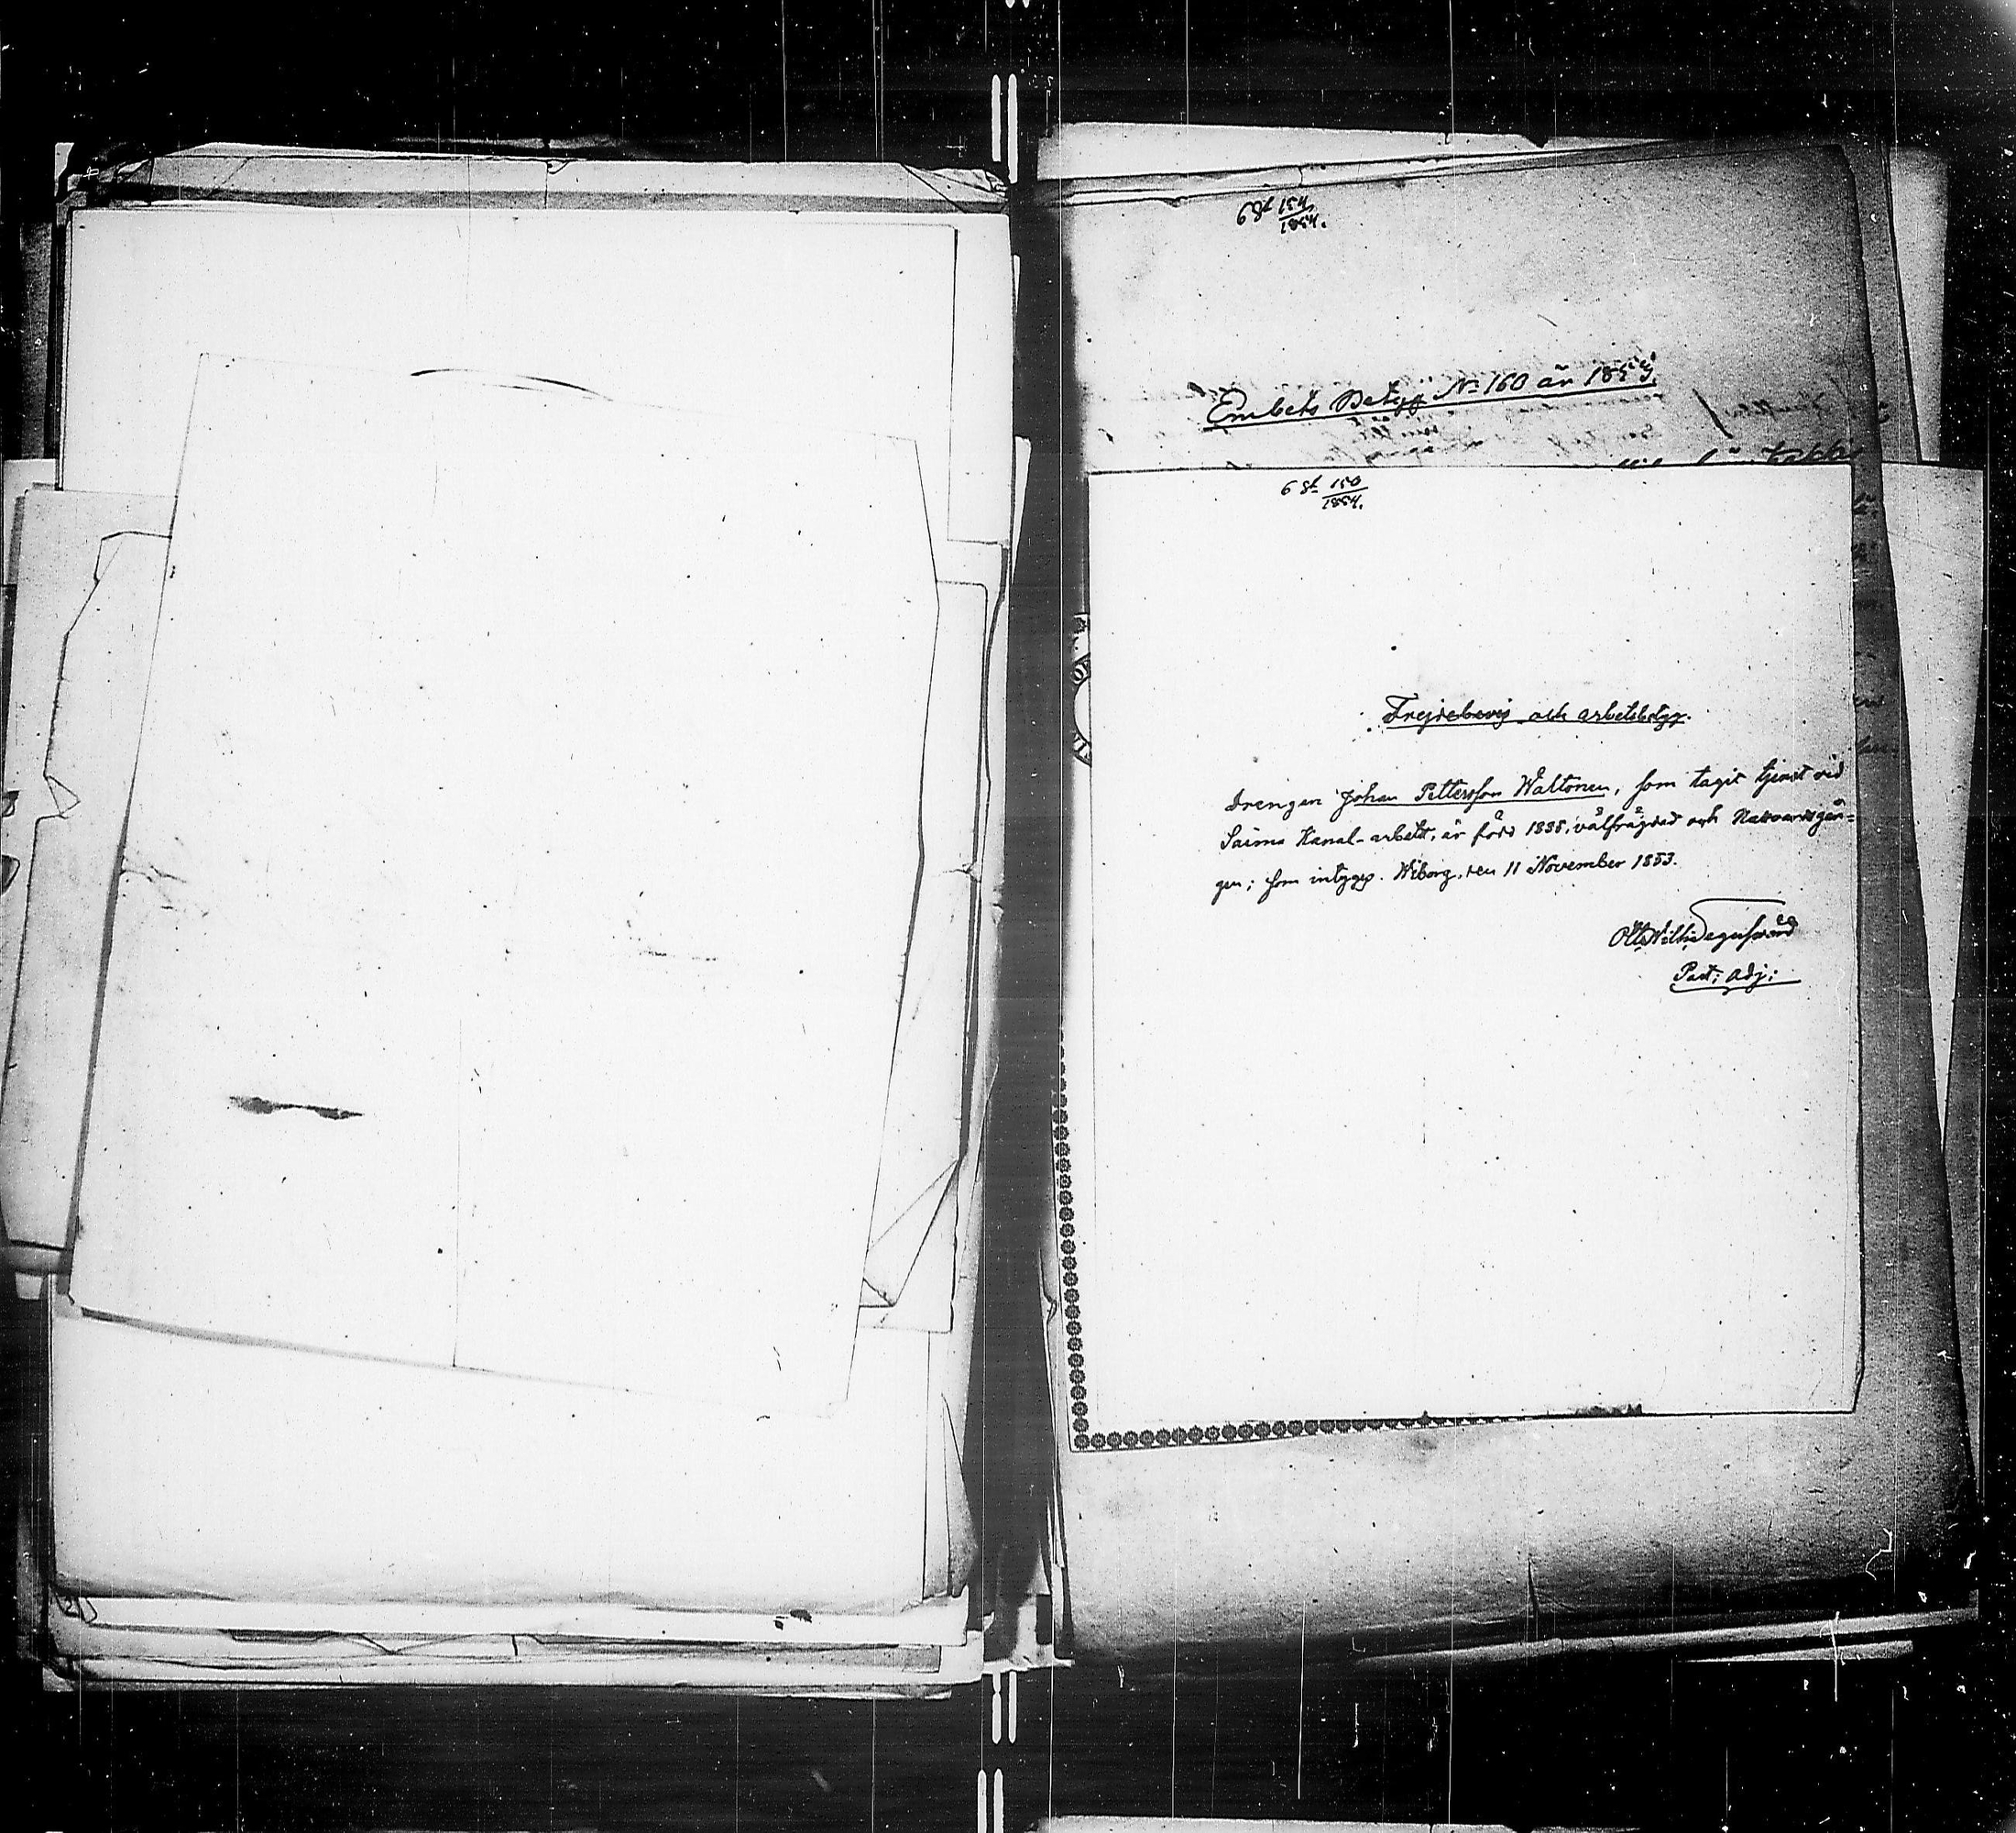 6 st 154/1854.
Embets Betyg No 160 år 1854.
6 st 150/1854.
Frejdebevis och arbetsbetyg.
Drengen Johan Pettersson Waltonen, som tagit tjenst vid
Saima Kanal-arbete, är född 1835, välfrägdad och Nattvardsgån-
gen; som intyges. Wiborg, den 11 November 1853.
Otto Wilh
Past: adj: